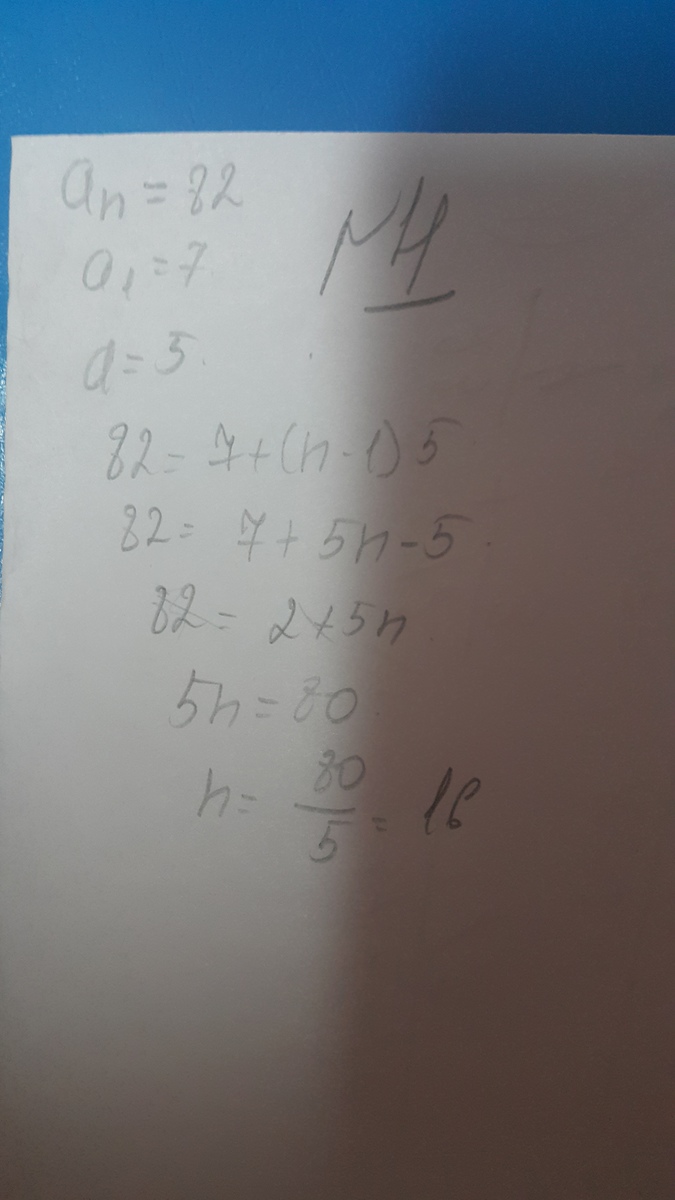 aₙ = 82
№4
a₁ = 7
d = 5.
82 = 7 + (n - 1) 5
82 = 7 + 5n - 5.
82 = 2 + 5n
5n = 80.
n = 80/5 = 16